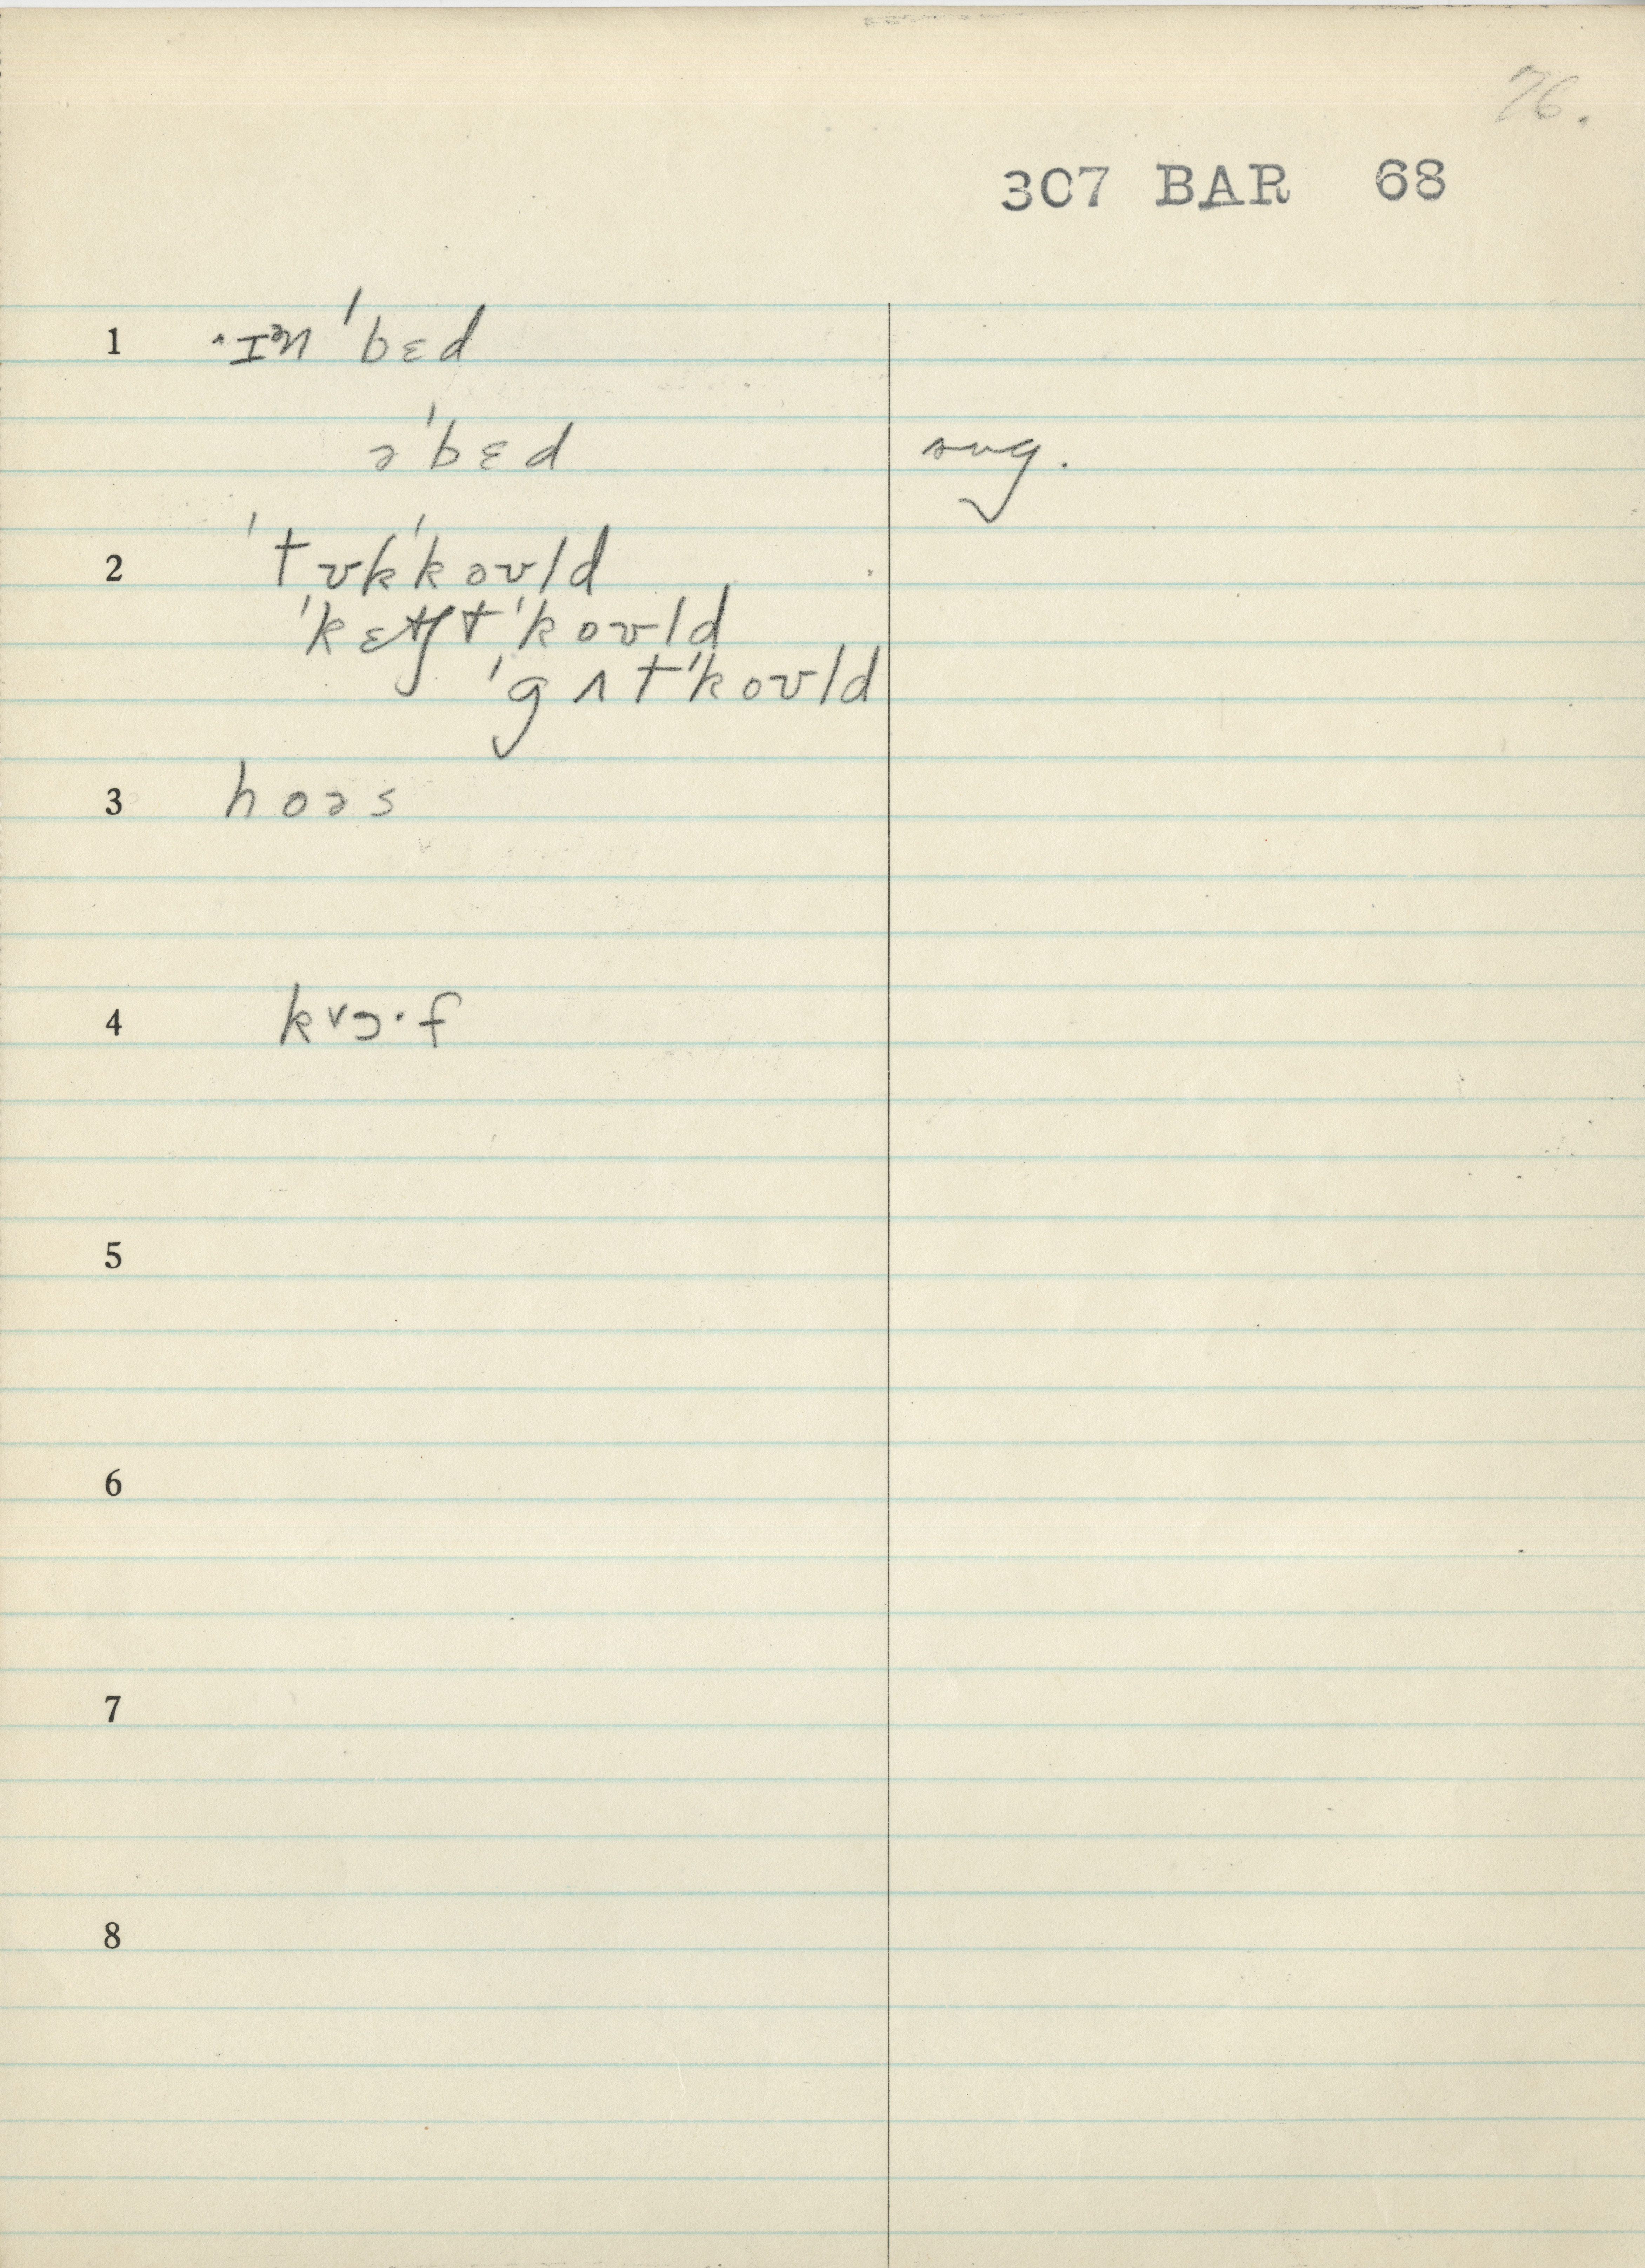 76.
307 BAR 68
1 ˄ɪᵊn ˈbɛd
əˈbɛd sug.
2 ˈtʊkˈkoʊld
ˈkɛtʃtˈkoʊld
ˈgʌtˈkoʊld
3 hoəs
4 kɔ˅·f
5
6
7
8